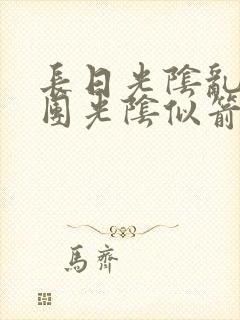 長日光陰亂
團光陰似箭
馬齊